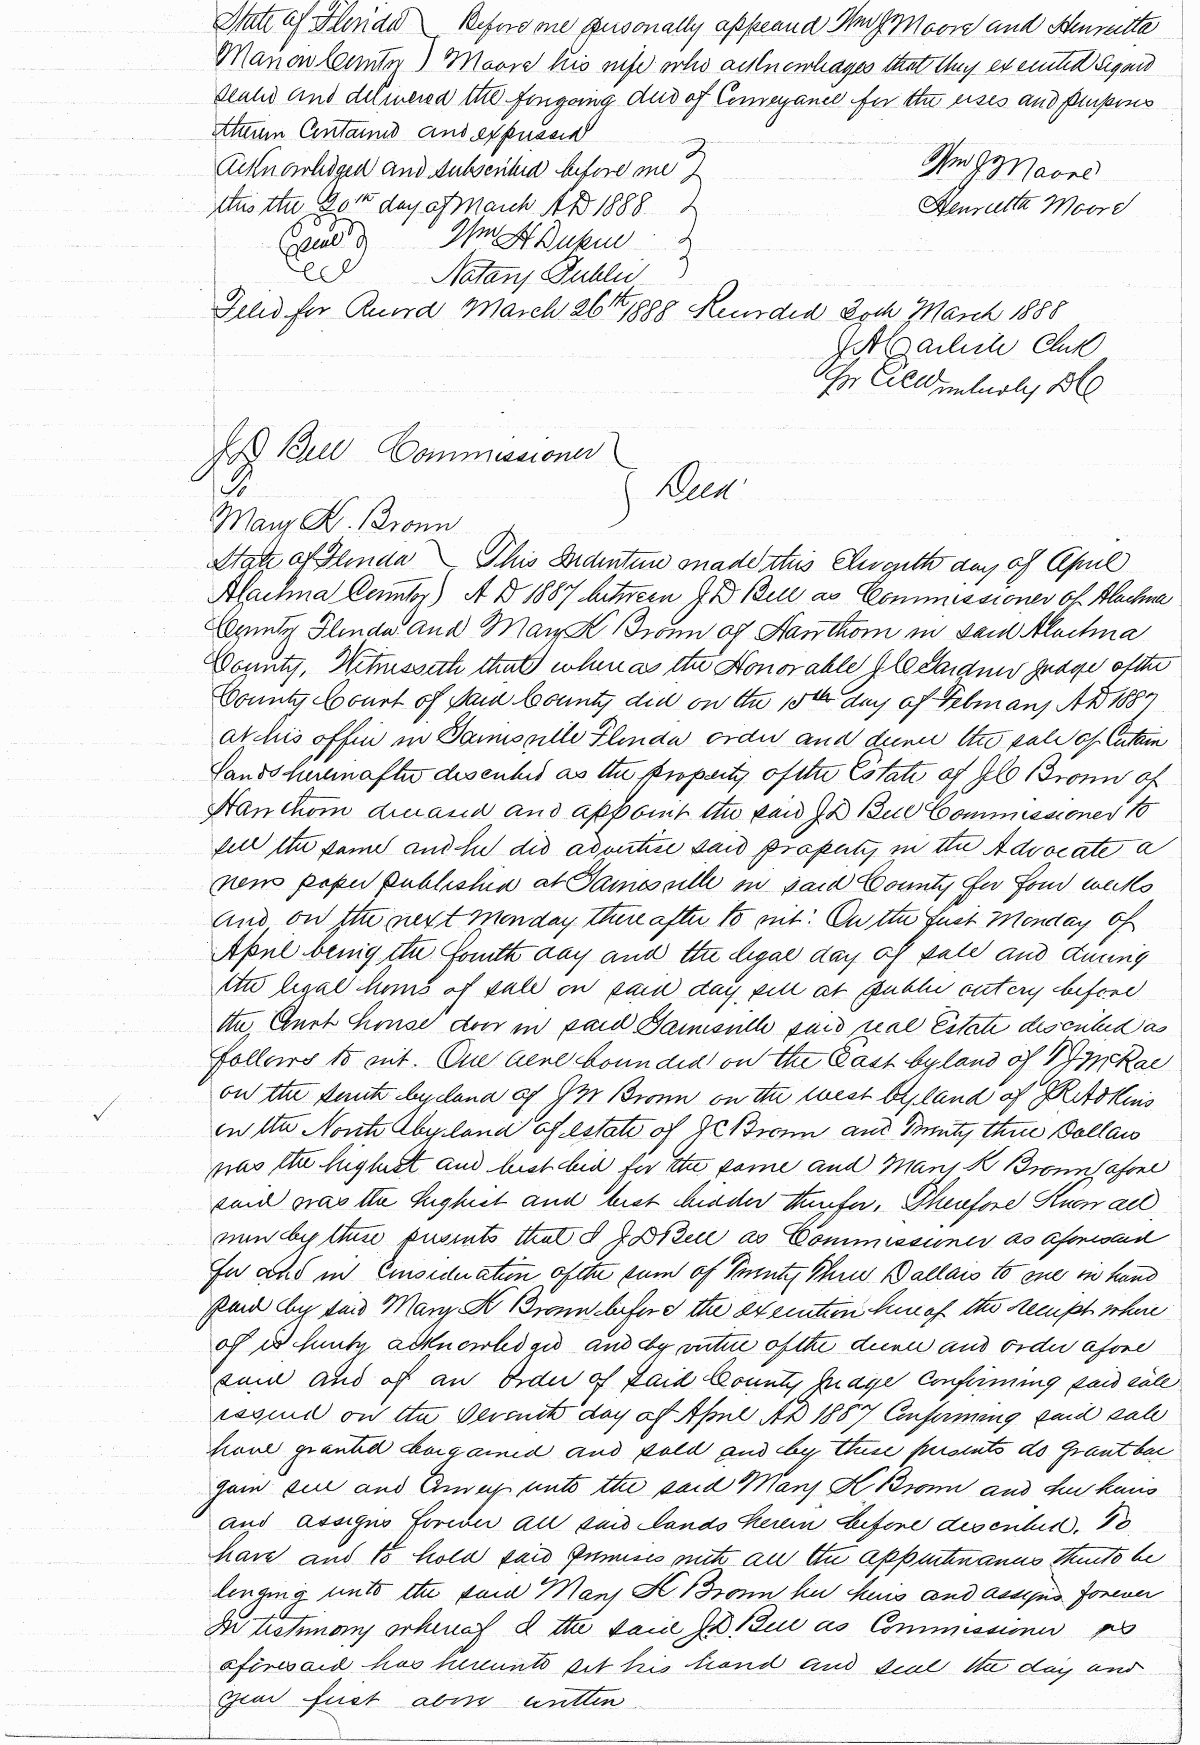 State of Florida ) Before me personally appeared Wm J Moore and Henrietta
Marion County ) Moore his wife who acknowledges that they executed signed
sealed and delivered the foregoing deed of Conveyance for the uses and purposes
therein Contained and expressed
Acknowledged and subscribed before me } Wm J Moore
this the 20th day of March AD 1888 } Henrietta Moore
(Seal) Wm H Dupree }
Notary Public }
Filed for Record March 26th 1888 Recorded 30th March 1888
J A Carlisle Clk
for Wimberly DC
J D Bell Commissioner )
To ) Deed
Mary K. Brown
State of Florida ) This Indenture made this Eleventh day of April
Alachua County ) A D 1887 between J D Bell as Commissioner of Alachua
County Florida and Mary K Brown of Hawthorn in said Alachua
County, Witnesseth that whereas the Honorable J C Gardner Judge of the
County Court of said County did on the 15th day of February AD 1887
at his office in Gainesville Florida order and decree the sale of Certain
lands hereinafter described as the property of the Estate of J C Brown of
Hawthorn deceased and appoint the said J D Bell Commissioner to
sell the same and he did advertise said property in the Advocate a
news paper published at Gainesville in said County for four weeks
and on the next Monday thereafter to wit: On the first Monday of
April being the fourth day and the legal day of sale and during
the legal hours of sale on said day sell at public outcry before
the Court house door in said Gainesville said real Estate described as
follows to wit. One acre bounded on the East by land of T J McRae
on the south by land of J W Brown on the west by land of J R Adkins
on the North by land of estate of J C Brown and Twenty three Dollars
was the highest and best bid for the same and Mary K Brown afore
said was the highest and best bidder therefor. Therefore Know all
men by these presents that I J D Bell as Commissioner as aforesaid
for and in Consideration of the sum of Twenty Three Dollars to me in hand
paid by said Mary K Brown before the execution hereof the receipt where
of is hereby acknowledged and by virtue of the decree and order afore
said and of an order of said County Judge Confirming said sale
issued on the Seventh day of April AD 1887 Confirming said sale
have granted bargained and sold and by these presents do grant bar
gain sell and Convey unto the said Mary K Brown and her heirs
and assigns forever all said lands herein before described. To
have and to hold said premises with all the appurtenances thereto be
longing unto the said Mary K Brown her heirs and assigns forever
In testimony whereof I the said J.D. Bell as Commissioner as
aforesaid has hereunto set his hand and seal the day and
year first above written